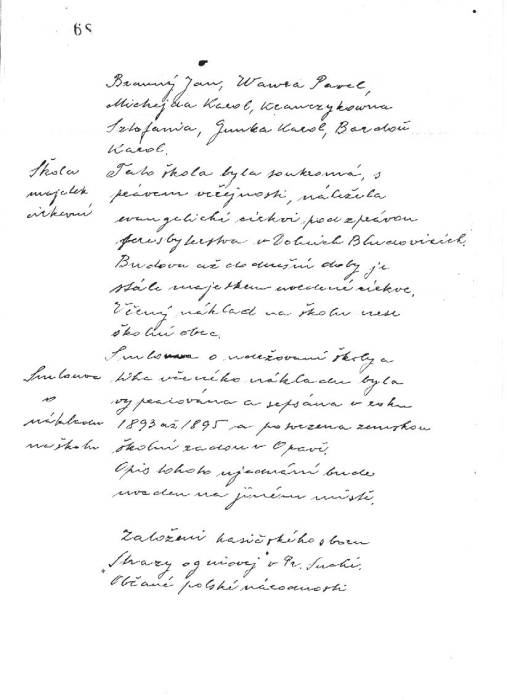 68
Branný Jan, Wawra Pavel,
Michejda Karol, Krawczykowna
Sztefania, Gunka Karol, Bardoń
Karol.
Škola
majetek
církevní
Tato škola byla soukromá, s
právem veřejnosti, náležela
evangelické církvi pod zprávou
presbyterstva v Dolních Bludovicích.
Budova až do dnešní doby je
stále majetkem uvedené církve.
Věcný náklad na školu nese
školní obec.
Smlouva
o
nákladu
na školu
Smlouva o udržovaní školy a
tíha věcného nákladu byla
vypracována a sepsána v roku
1893 až 1895 a potvrzena zemskou
školní radou v Opavě.
Opis tohoto ujednání bude
uveden na jiném místě.
Založení hasičského sboru
„Strazy ogniovej" v Pr. Suché.
Občané polské národnosti